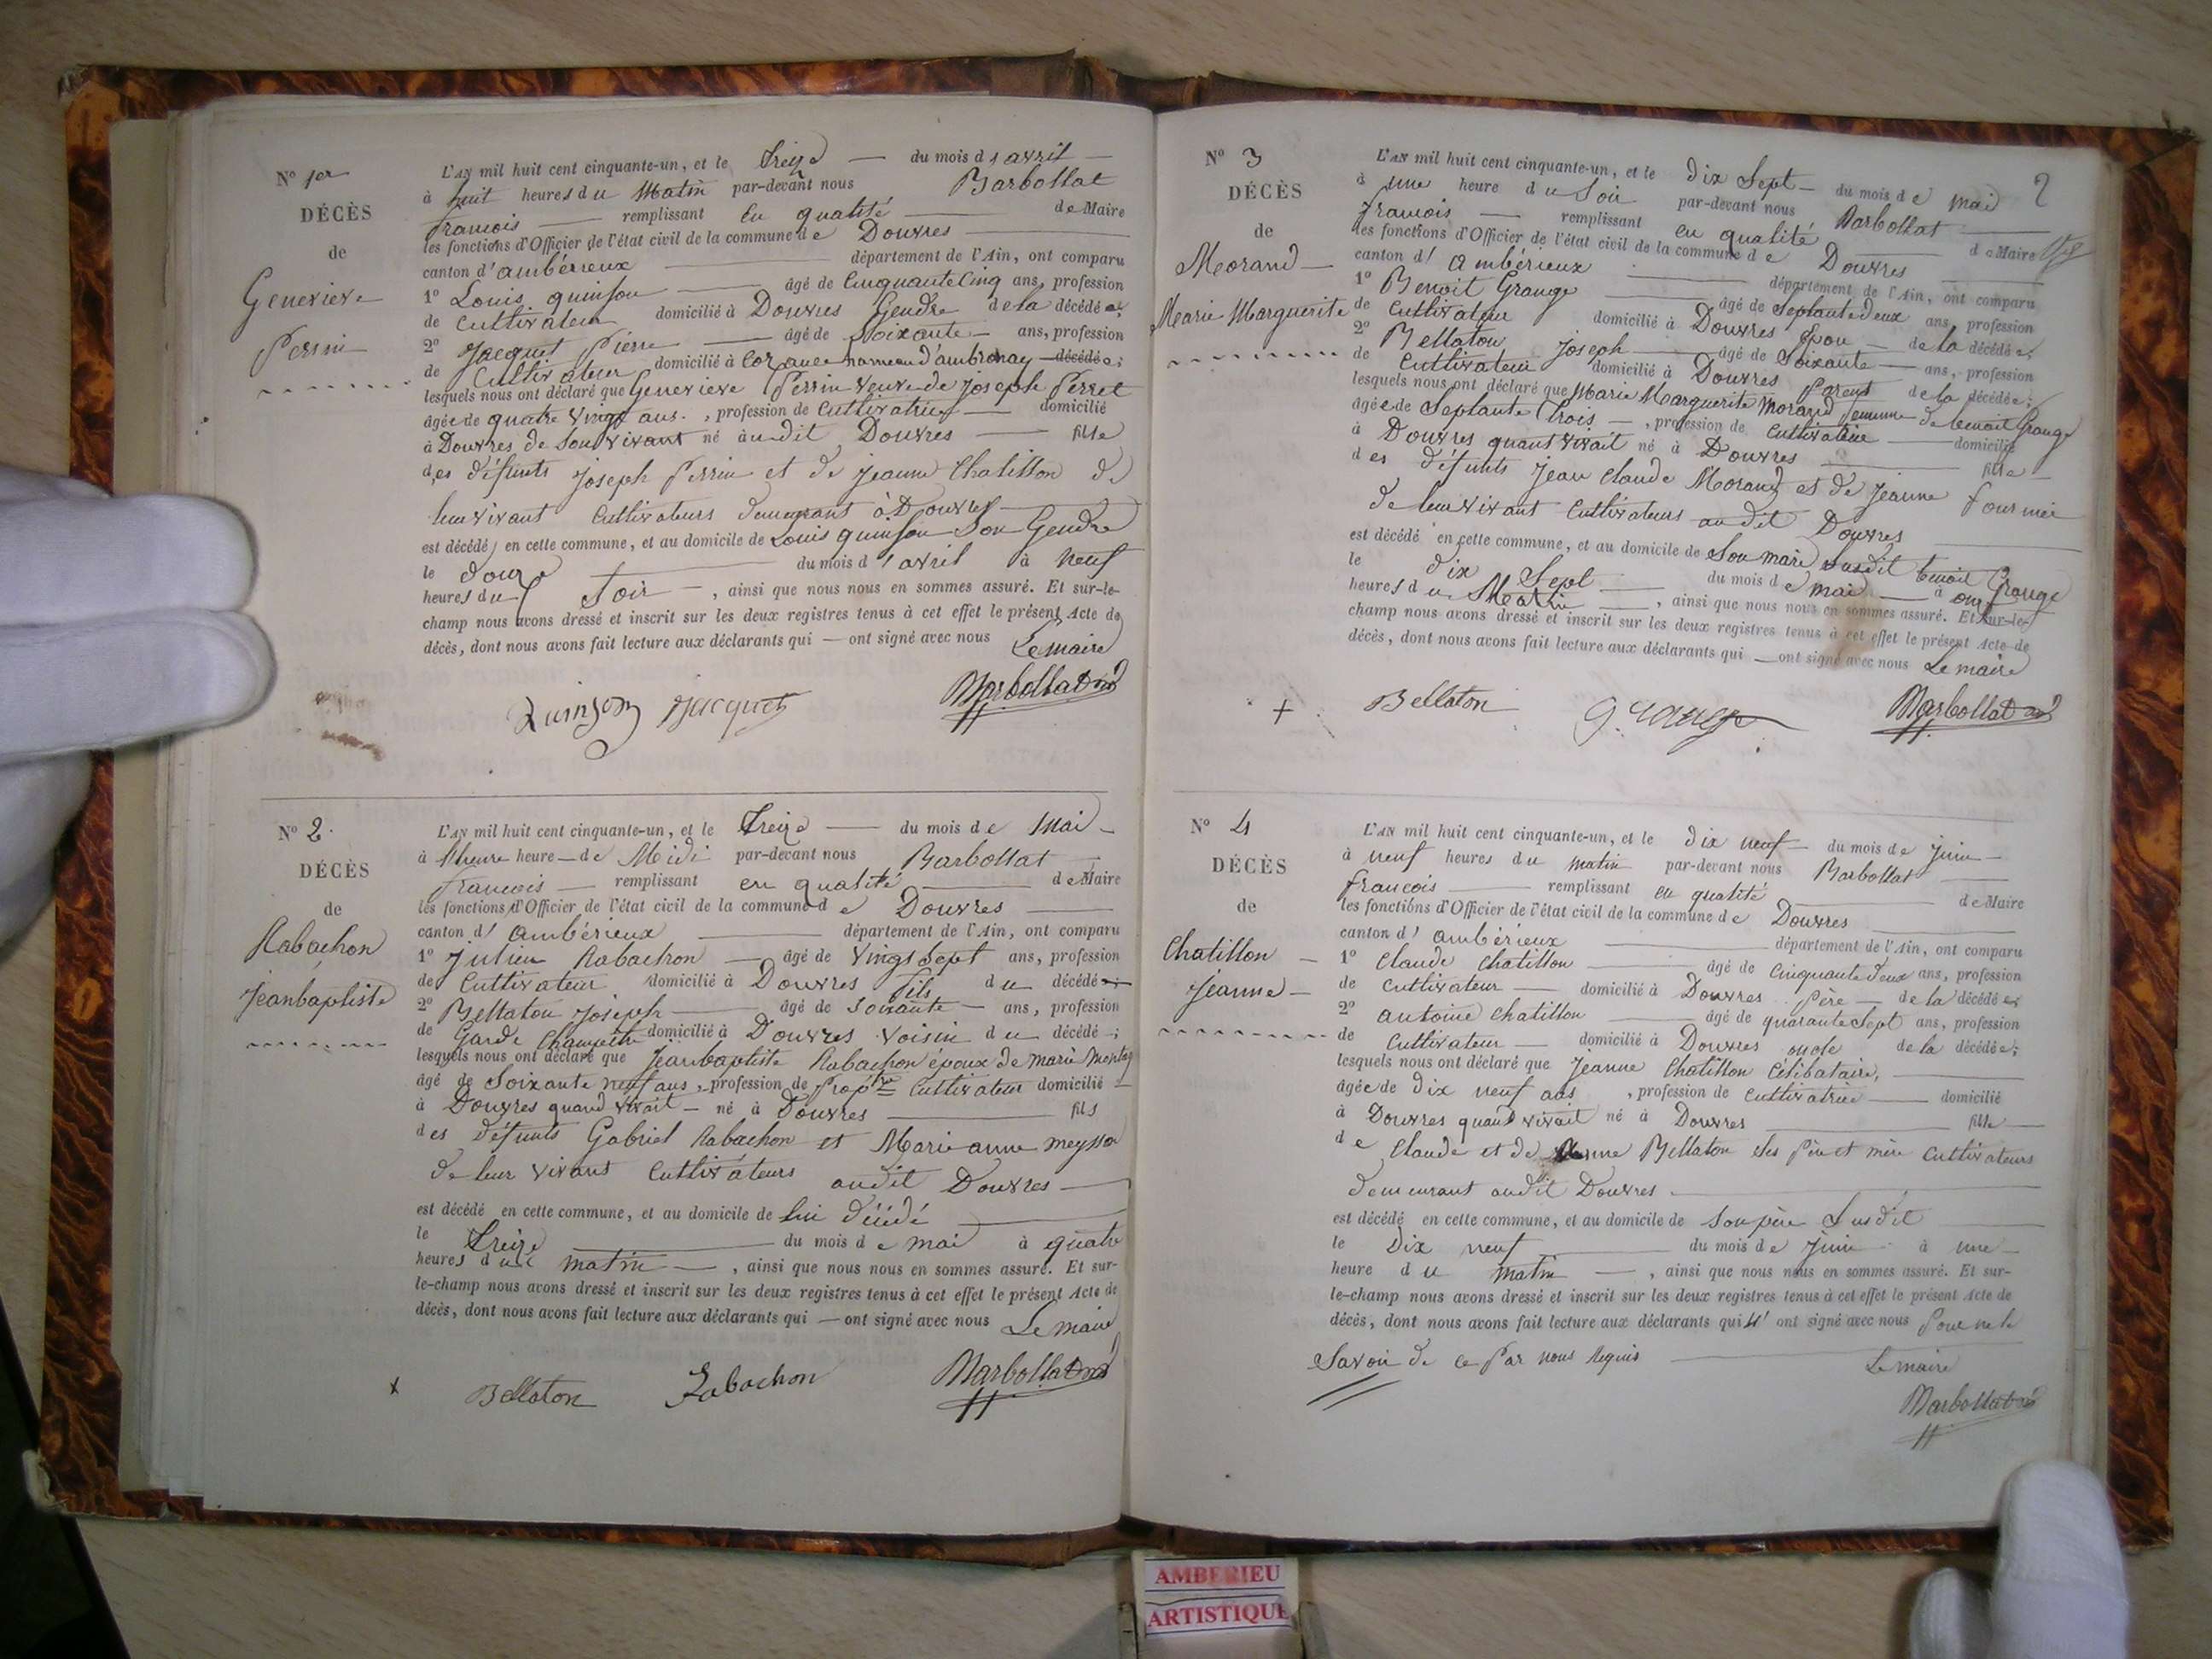 N° 1er
DÉCÈS
de
Genevieve
Perrin
L'AN mil huit cent cinquante-un, et le treize — du mois d'avril —
à huit heures du Matin par-devant nous Barbollat
francois — remplissant en qualité — de Maire
les fonctions d'Officier de l'état civil de la commune de Douvres —
canton d'ambérieux — département de l'Ain, ont comparu
1° Louis quinson — âgé de Cinquante Cinq ans, profession
de Cultivateur domicilié à Douvres Gendre de la décédée;
2° Jacquet Pierre — âgé de Soixante — ans, profession
de Cultivateur domicilié à hameau d'ambronay — décédée;
lesquels nous ont déclaré que Genevieve Perrin veuve de joseph Perret
âgée de quatre vingt ans, profession de Cultivatrice — domicilié
à Douvres de Son vivant né audit Douvres — fille
des défunts Joseph Perrin et de jeanne Chatillon de
leur vivant Cultivateurs demeurant à Douvres —
est décédé en cette commune, et au domicile de Louis quinson Son Gendre
le douze — du mois d'avril à neuf
heures du Soir —, ainsi que nous nous en sommes assuré. Et sur-le-
champ nous avons dressé et inscrit sur les deux registres tenus à cet effet le présent Acte de
décès, dont nous avons fait lecture aux déclarants qui — ont signé avec nous Le maire
Quinson Jacquet Barbollat
N° 2.
DÉCÈS
de
Rabachon
jeanbaptiste
L'AN mil huit cent cinquante-un, et le treize — du mois de Mai —
à 1 heure — de Midi par-devant nous Barbollat —
francois — remplissant en qualité — de Maire
les fonctions d'Officier de l'état civil de la commune de Douvres —
canton d'ambérieux — département de l'Ain, ont comparu
1° Julien Rabachon — âgé de vingt Sept ans, profession
de Cultivateur domicilié à Douvres fils du décédé
2° Bellaton Joseph — âgé de soixante — ans, profession
de Garde Champêtre domicilié à Douvres voisin du décédé;
lesquels nous ont déclaré que Jeanbaptiste Rabachon époux de marie
âgé de Soixante neuf ans, profession de Proptre Cultivateur domicilié
à Douvres quand vivait — né à Douvres — fils
des défunts Gabriel Rabachon et Marie anne
de leur vivant Cultivateurs audit Douvres —
est décédé en cette commune, et au domicile de lui décédé —
le treize — du mois de mai à quatre
heures du matin —, ainsi que nous nous en sommes assuré. Et sur-
le-champ nous avons dressé et inscrit sur les deux registres tenus à cet effet le présent Acte de
décès, dont nous avons fait lecture aux déclarants qui — ont signé avec nous Le maire
x Bellaton Rabachon Barbollat
2
N° 3
DÉCÈS
de
Morand —
Marie Marguerite
L'AN mil huit cent cinquante-un, et le dix Sept — du mois de mai
à une heure du Soir par-devant nous Barbollat —
francois — remplissant en qualité — de Maire
les fonctions d'Officier de l'état civil de la commune de Douvres
canton d'ambérieux — département de l'Ain, ont comparu
1° Benoit Grange — âgé de Septante deux ans, profession
de Cultivateur domicilié à Douvres Epou — de la décédée;
2° Bellaton Joseph — âgé de Soixante — ans, profession
de Cultivateur domicilié à Douvres Parent de la décédée;
lesquels nous ont déclaré que Marie Marguerite Morand femme de benoit Grange
âgée de Septante trois —, profession de Cultivatrice — domicilié
à Douvres quant vivait né à Douvres — fille —
des défunts Jean Claude Morand et de Jeanne fournier
de leur vivant Cultivateurs audit Douvres —
est décédé en cette commune, et au domicile de Son mari Susdit benoit Grange
le dix Sept — du mois de mai — à onze
heures du Matin —, ainsi que nous nous en sommes assuré. Et sur-le-
champ nous avons dressé et inscrit sur les deux registres tenus à cet effet le présent Acte de
décès, dont nous avons fait lecture aux déclarants qui — ont signé avec nous Le maire
+ Bellaton Grange Barbollat
N° 4
DÉCÈS
de
Chatillon —
jeanne —
L'AN mil huit cent cinquante-un, et le dix neuf — du mois de juin —
à neuf heures du matin par-devant nous Barbollat —
francois — remplissant en qualité — de Maire
les fonctions d'Officier de l'état civil de la commune de Douvres —
canton d'ambérieux — département de l'Ain, ont comparu
1° Claude Chatillon — âgé de Cinquante deux ans, profession
de Cultivateur — domicilié à Douvres Père — de la décédée;
2° antoine Chatillon — âgé de quarante Sept ans, profession
de Cultivateur — domicilié à Douvres oncle de la décédée;
lesquels nous ont déclaré que Jeanne Chatillon Célibataire, —
âgée de dix neuf ans, profession de Cultivatrice — domicilié
à Douvres quant vivait né à Douvres — fille —
de Claude et de Bellaton Ses Père et mère Cultivateurs
demeurant audit Douvres —
est décédé en cette commune, et au domicile de Son père Susdit —
le Dix neuf — du mois de juin à une —
heure du matin —, ainsi que nous nous en sommes assuré. Et sur-
le-champ nous avons dressé et inscrit sur les deux registres tenus à cet effet le présent Acte de
décès, dont nous avons fait lecture aux déclarants qui n' ont signé avec nous Pour ne le
Savoir de ce Par nous Requis —
Le maire
Barbollat
AMBERIEU
ARTISTIQUE